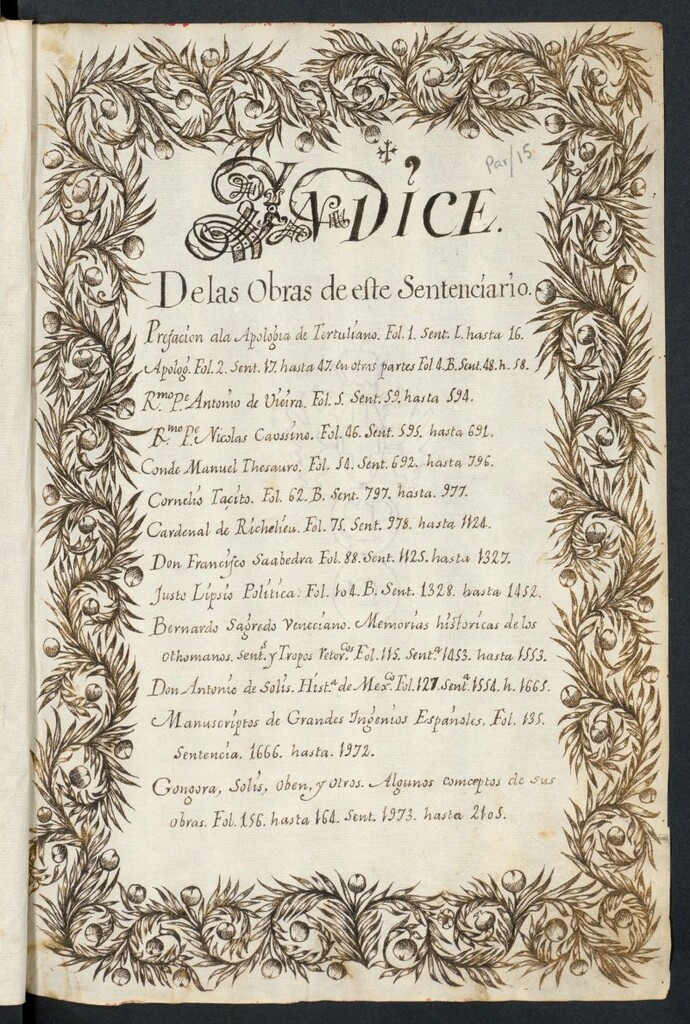 Par/15
INDiCE.
De las Obras de este Sentenciario.
Prefacion ala Apologia de Tertuliano. Fol. 1. Sent. 1. hasta 16.
Apolog. Fol. 2. Sent. 17. hasta 47. en otras partes Fol 4. B. Sent. 48. h. 58.
R.mo P.e Antonio de Vieira. Fol. 5. Sent. 59. hasta 594.
R.mo P.e Nicolas Caussino. Fol. 46. Sent. 595. hasta 691.
Conde Manuel Thesauro. Fol. 54. Sent. 692. hasta 796.
Cornelio Tacito. Fol. 62. B. Sent. 797. hasta. 977.
Cardenal de Richelieu. Fol. 75. Sent. 978. hasta 1124.
Don Francisco Saabedra Fol. 88. Sent. 1125. hasta 1327.
Justo Lipsio Politica. Fol. 104. B. Sent. 1328. hasta 1452.
Bernardo Sagredo Veneciano. Memorias historicas de los
Othomanos. Sent.s y Tropos retor.cos Fol. 115. Sent.a 1453. hasta 1553.
Don Antonio de Solis. Hist.a de Mex.co Fol. 127. Sent.a 1554. h. 1665.
Manuscriptos de Grandes Ingenios Españoles. Fol. 135.
Sentencia. 1666. hasta. 1972.
Gongora, Solis, Oben, y otros. Algunos comceptos de sus
obras. Fol. 156. hasta 164. Sent. 1973. hasta 2105.